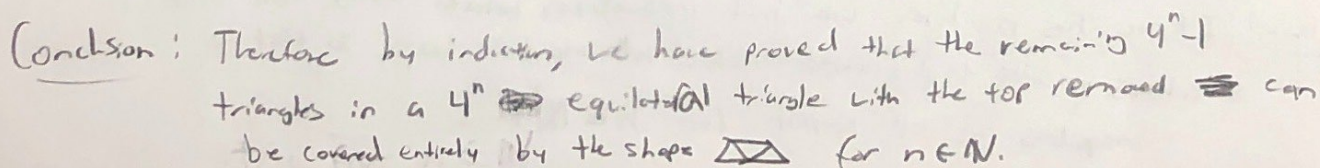 Conclusion: Therefore by induction, we have proved that the remaining 4ⁿ-1
triangles in a 4ⁿ equilateral triangle with the top removed can
be covered entirely by the shape for n ∈ ℕ.